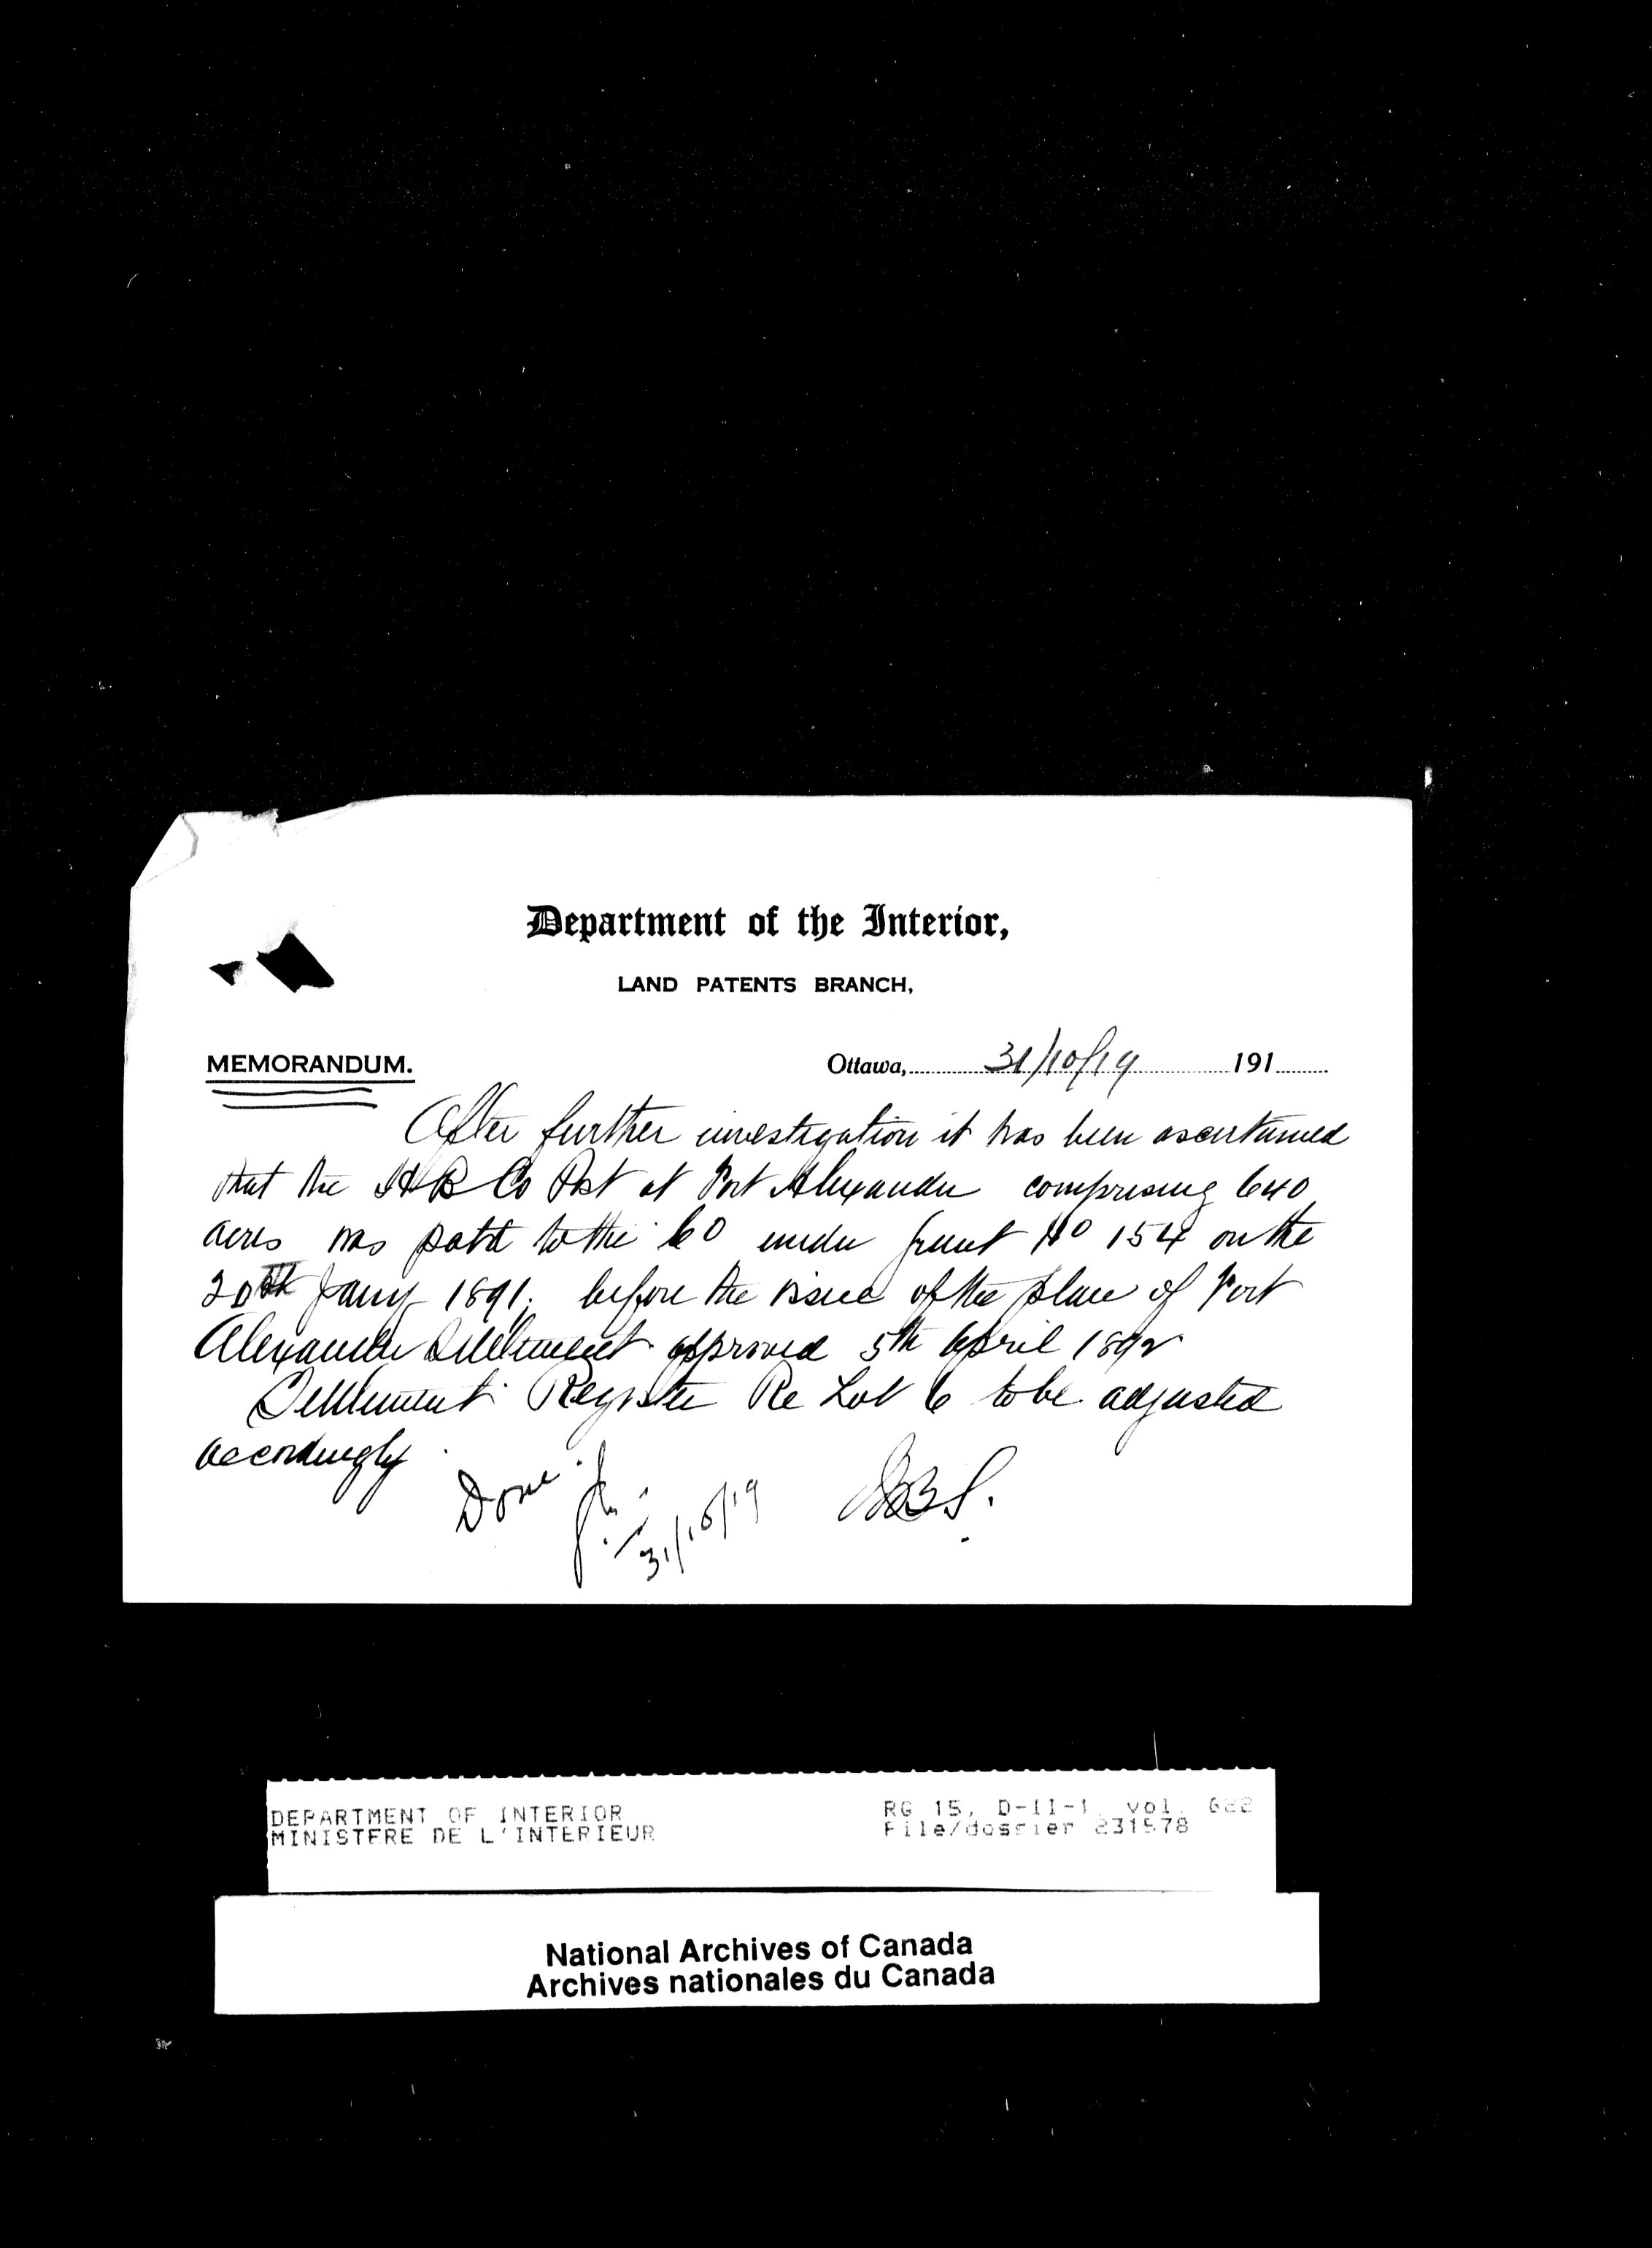 Department of the Interior,
LAND PATENTS BRANCH,
MEMORANDUM.
Ottawa, 31/10/19 191
After further investigation it has been ascertained
that the HB Co Post at Fort Alexander comprising 640
acres was patd to the Co under grant No 154 on the
20th Jany 1891. before the issue of the plan of Fort
Alexander Settlement approved 5th April 1892
Settlement Register Re Lot 6 to be adjusted
accordingly
Done
31/10/19
DEPARTMENT OF INTERIOR
MINISTERE DE L'INTERIEUR
RG 15, D-II-1, vol. 622
File/dossier 231578
National Archives of Canada
Archives nationales du Canada